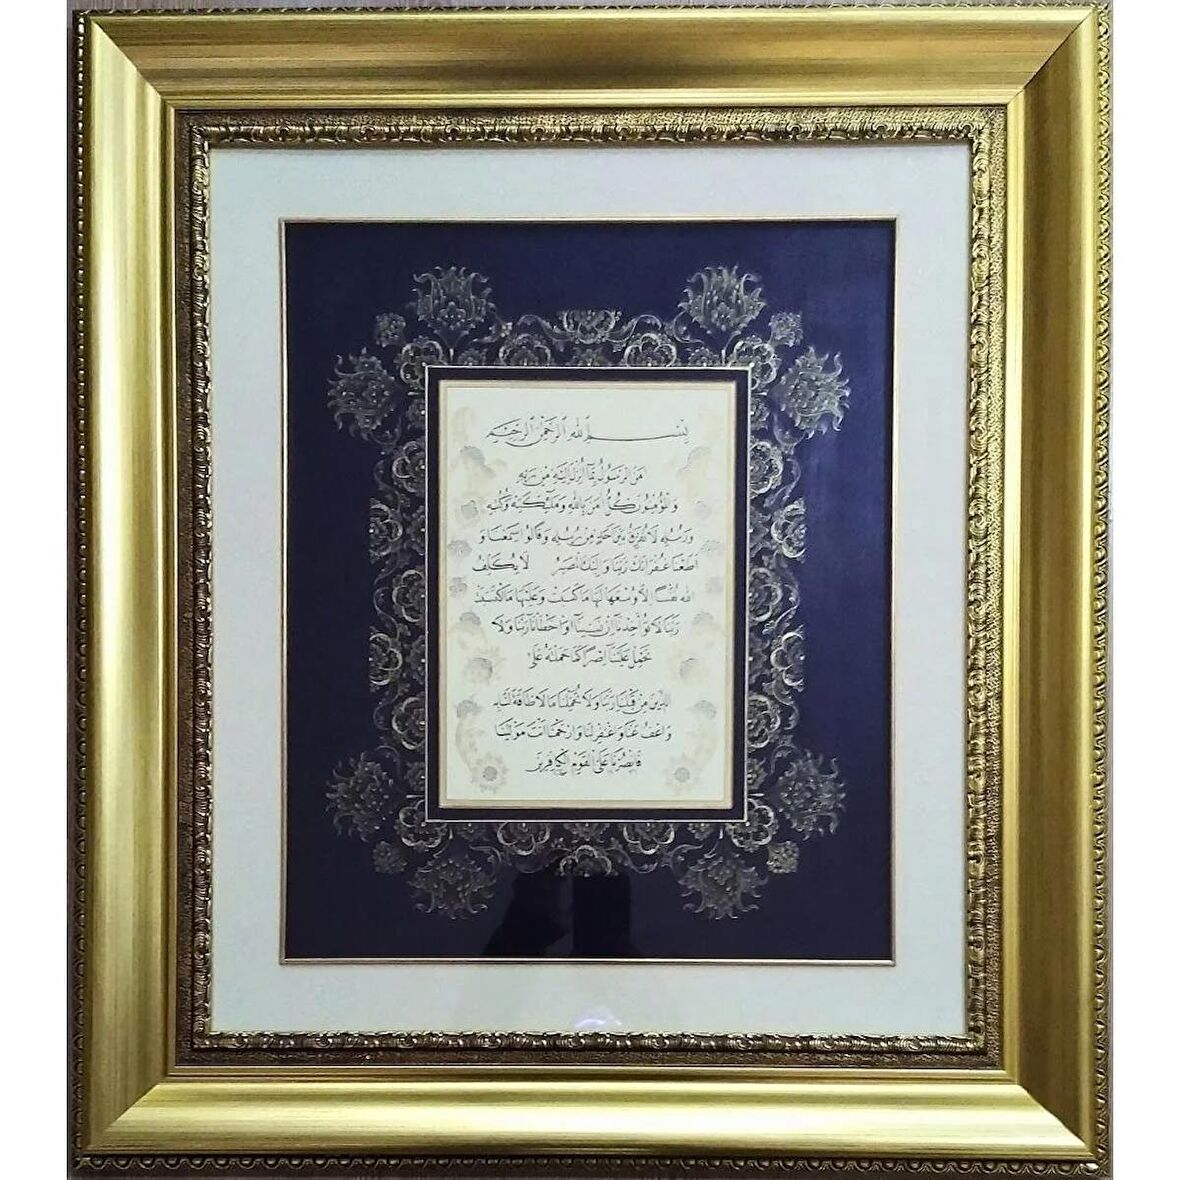 بسم الله الرحمن الرحيم
امن الرسول بما انزل اليه من ربه
والمؤمنون كل امن بالله وملئكته وكتبه
ورسله لا نفرق بين احد من رسله وقالوا سمعنا و
اطعنا غفرانك ربنا واليك المصير لا يكلف
الله نفسا الا وسعها لها ما كسبت وعليها ما اكتسبت
ربنا لا تؤاخذنا ان نسينا او اخطانا ربنا ولا
تحمل علينا اصرا كما حملته على
الذين من قبلنا ربنا ولا تحملنا ما لا طاقة لنا به
واعف عنا واغفر لنا وارحمنا انت مولينا
فانصرنا على القوم الكافرين